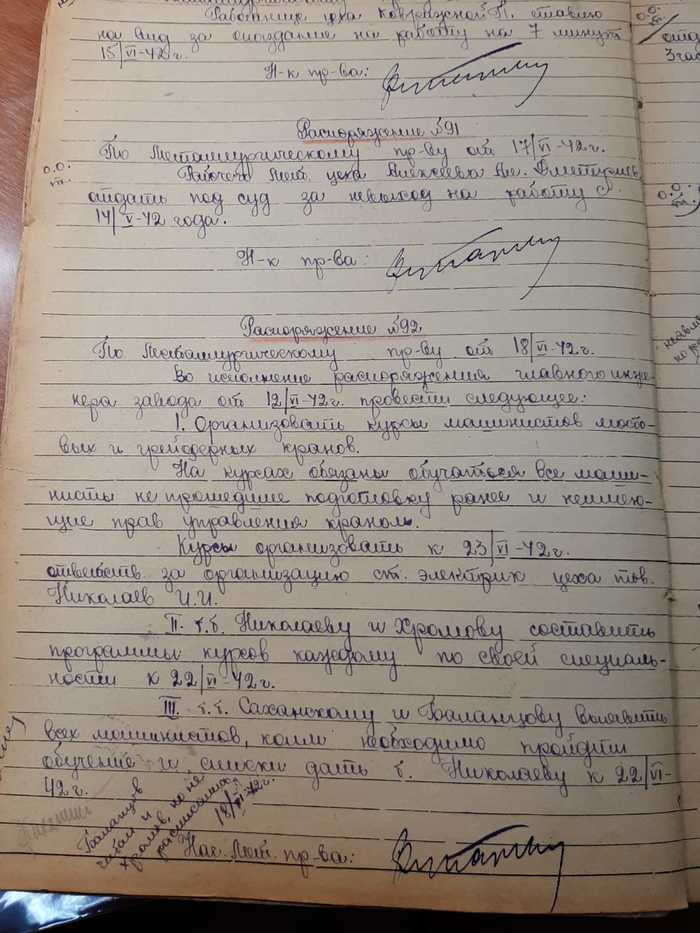 Работнице цеха Коврижной П. ставлю
на вид за опоздание на работу на 7 минут
15/VI-42г.
Н-к пр-ва:
Распоряжение №91
По Металлургическому пр-ву от 17/VI-42г.
о.о.
Рабочего Мет. цеха Алексеева Ал. Дмитриев.
отдать под суд за невыход на работу с
14/V-42 года.
Н-к пр-ва:
Распоряжение №92
По Металлургическому пр-ву от 18/VI-42г.
Во исполнение распоряжения главного инже-
нера завода от 12/VI-42г. провести следующее:
1. Организовать курсы машинистов мосто-
вых и грейферных кранов.
На курсах обязаны обучаться все маши-
нисты не прошедшие подготовку ранее и неимею-
щие прав управления краном.
Курсы организовать к 23/VI-42г.
ответств. за организацию ст. электрик цеха тов.
Николаев И.И.
II. т.т. Николаеву и Хромову составить
программы курсов каждому по своей специаль-
ности к 22/VI-42г.
III. т.т. Саханскому и Баланцову выявить
всех машинистов, коим необходимо пройти
обучение и списки дать т. Николаеву к 22/VI-
42г.
Баланцов
читал и
Хромов, но не
расписались
18/VI-42г.
Нач. Мет. пр-ва: